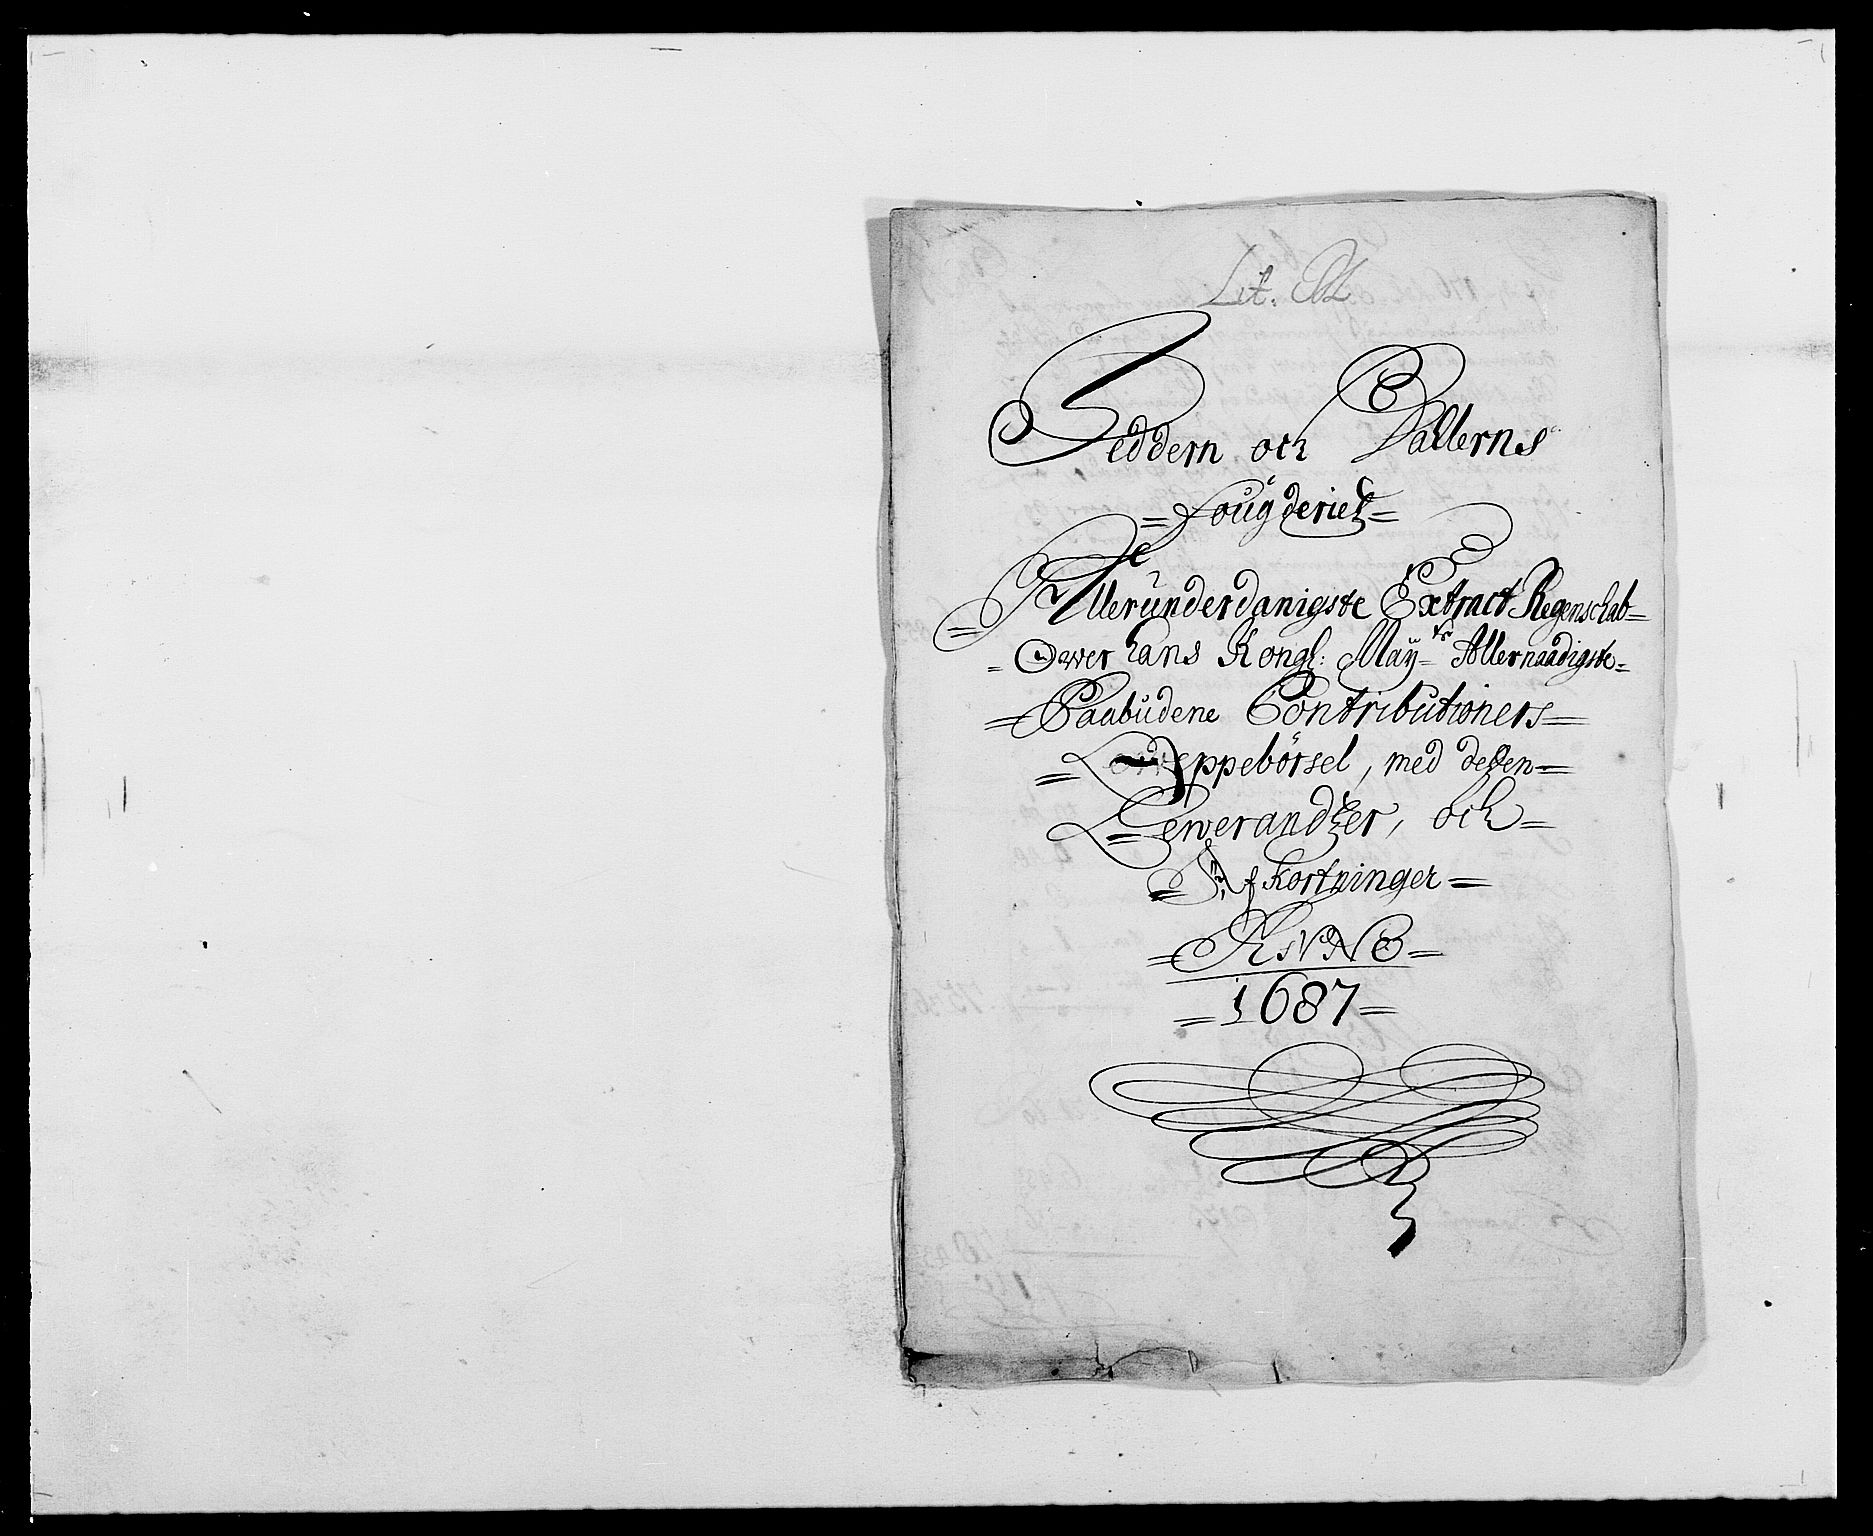 Lit. M
Jeddern och Dallerns
= Fougderies =
= Allerunderdanigste Extract Regenschab =
= Ower hans Kongl: May:ts Allernaadigste =
= Paabudene Contributioners =
= Oppebörsel, med deßen =
= Lewerandzer, och =
= Afkortninger =
= ANNO =
= 1687 =